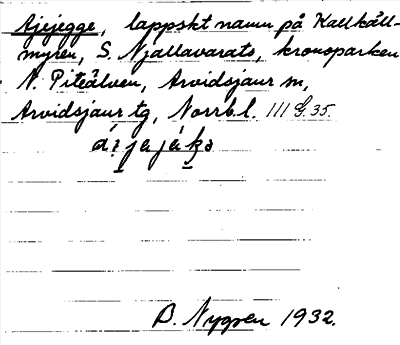 Ajejegge, lappskt namn på Kallkäll-
myren, S. Njallavarats, kronoparken
N. Piteälven, Arvidsjaur sn,
Arvidsjaur tg, Norrb. l. III S. 35.
B. Nygren 1932.